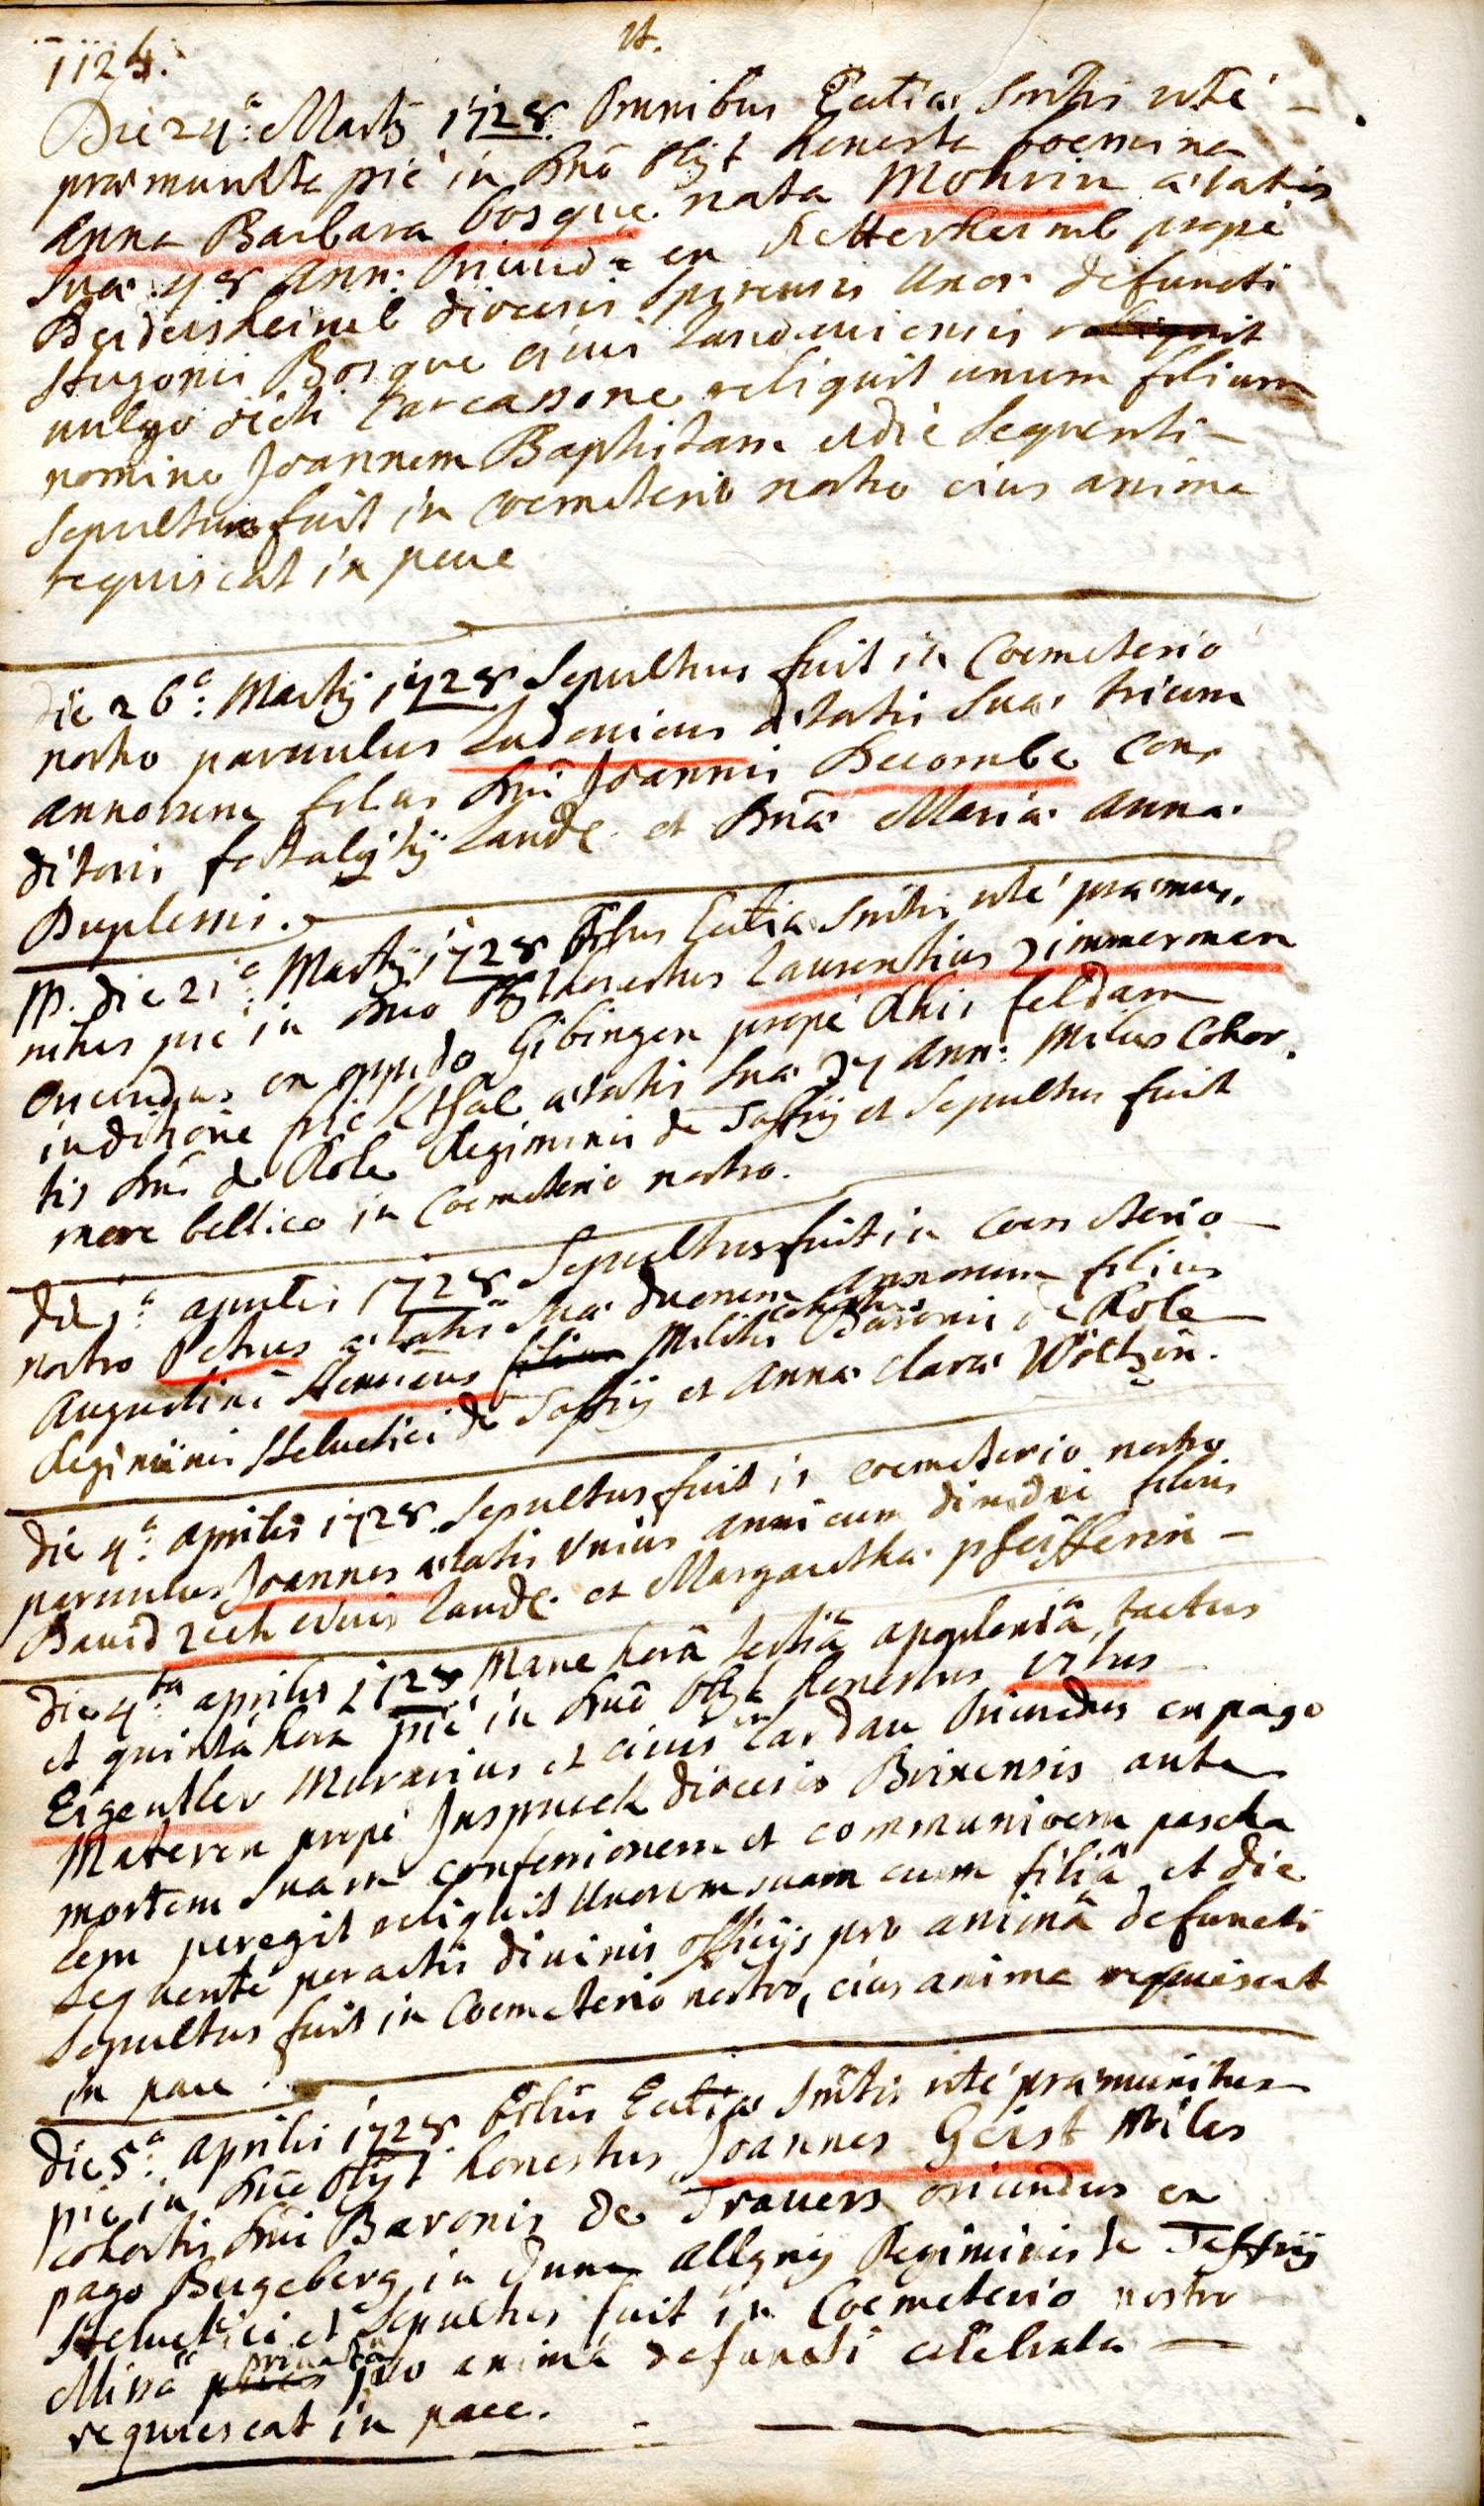 1728.
Die 24.a Martij 1728 Omnibus Eccliae Sacrtis rité
praemunita pié in Dno obijt honesta foemina
Anna Barbara bosque nata Mohrin aetatis
Suae 48 Ann: Oriunda ex Ketterheimb propé
Beidersheimb dioecesis Spirensis Uxor defuncti
Hugonis Bosque civis Landaviensis
vulgo dicti Carcassone reliquit unum filium
nomine Joannem Baptistam et die Sequenti
Sepulta fuit in coemeterio nostro eius anima
requiescat in pace
die 26.a Martij 1728 Sepultus fuit in Coemeterio
nostro parvulus Ludovicus aetatis Suae trium
annorum filius Dni Joannis Decombe Con-
ditoris fortalitij Landé et Dnae Mariae Annae
Duplessis.
die 21.a Martij 1728 Eccliae Sacrtis rité praemu-
nitus pié in Dno obijt honestus Laurentius Zimmerman
oriundus ex oppido Gibingen propé feldam
in ditione aetatis Suae Ann: Miles Cohor-
tis Dni de Role Regiminis de et Sepultus fuit
more bellico in Coemeterio nostro.
die 1.a aprilis 1728 Sepultus fuit in Coemeterio
nostro Petrus aetatis Suae duorum annorum filius
Augustini Militis cohortis Baronis de Role
Regiminis Helvetici de et Annae Clarae Wöltzin.
Die 4.a aprilis 1728 Sepultus fuit in coemeterio nostro
parvulus Joannes aetatis Unius anni cum dimidei filius
David Zech civis Landé. et Margaretha pfeifferin
die 4.ta aprilis 1728 Mane horâ tertiâ apoplexiâ tactus
et quintâ hora pié in Dno obijt honestus vitus
Eigentler Murarius et civis in Landau Oriundus ex pago
Materen propé Jnspruck dioecesis Brixensis ante
mortem Suam confessionem et communionem pascha
lem peregit reliquit Uxorem suam cum filiâ et die
Sequenté peractis divinis officijs pro animâ defuncti
Sepultus fuit in Coemeterio nostro, eius anima requiescat
in pace.
Die 5.a aprilis 1728 Eccliae Sacrtis rité praemunitus
pié in Dno obijt honestus Joannes Geist Miles
cohortis Dni Baronis de Travers oriundus ex
pago Bugeberg in Regiminis de
Helvetici et Sepultus fuit in Coemeterio nostro
Missâ privatâ pro animâ defuncti celebrata
requiescat in pace.